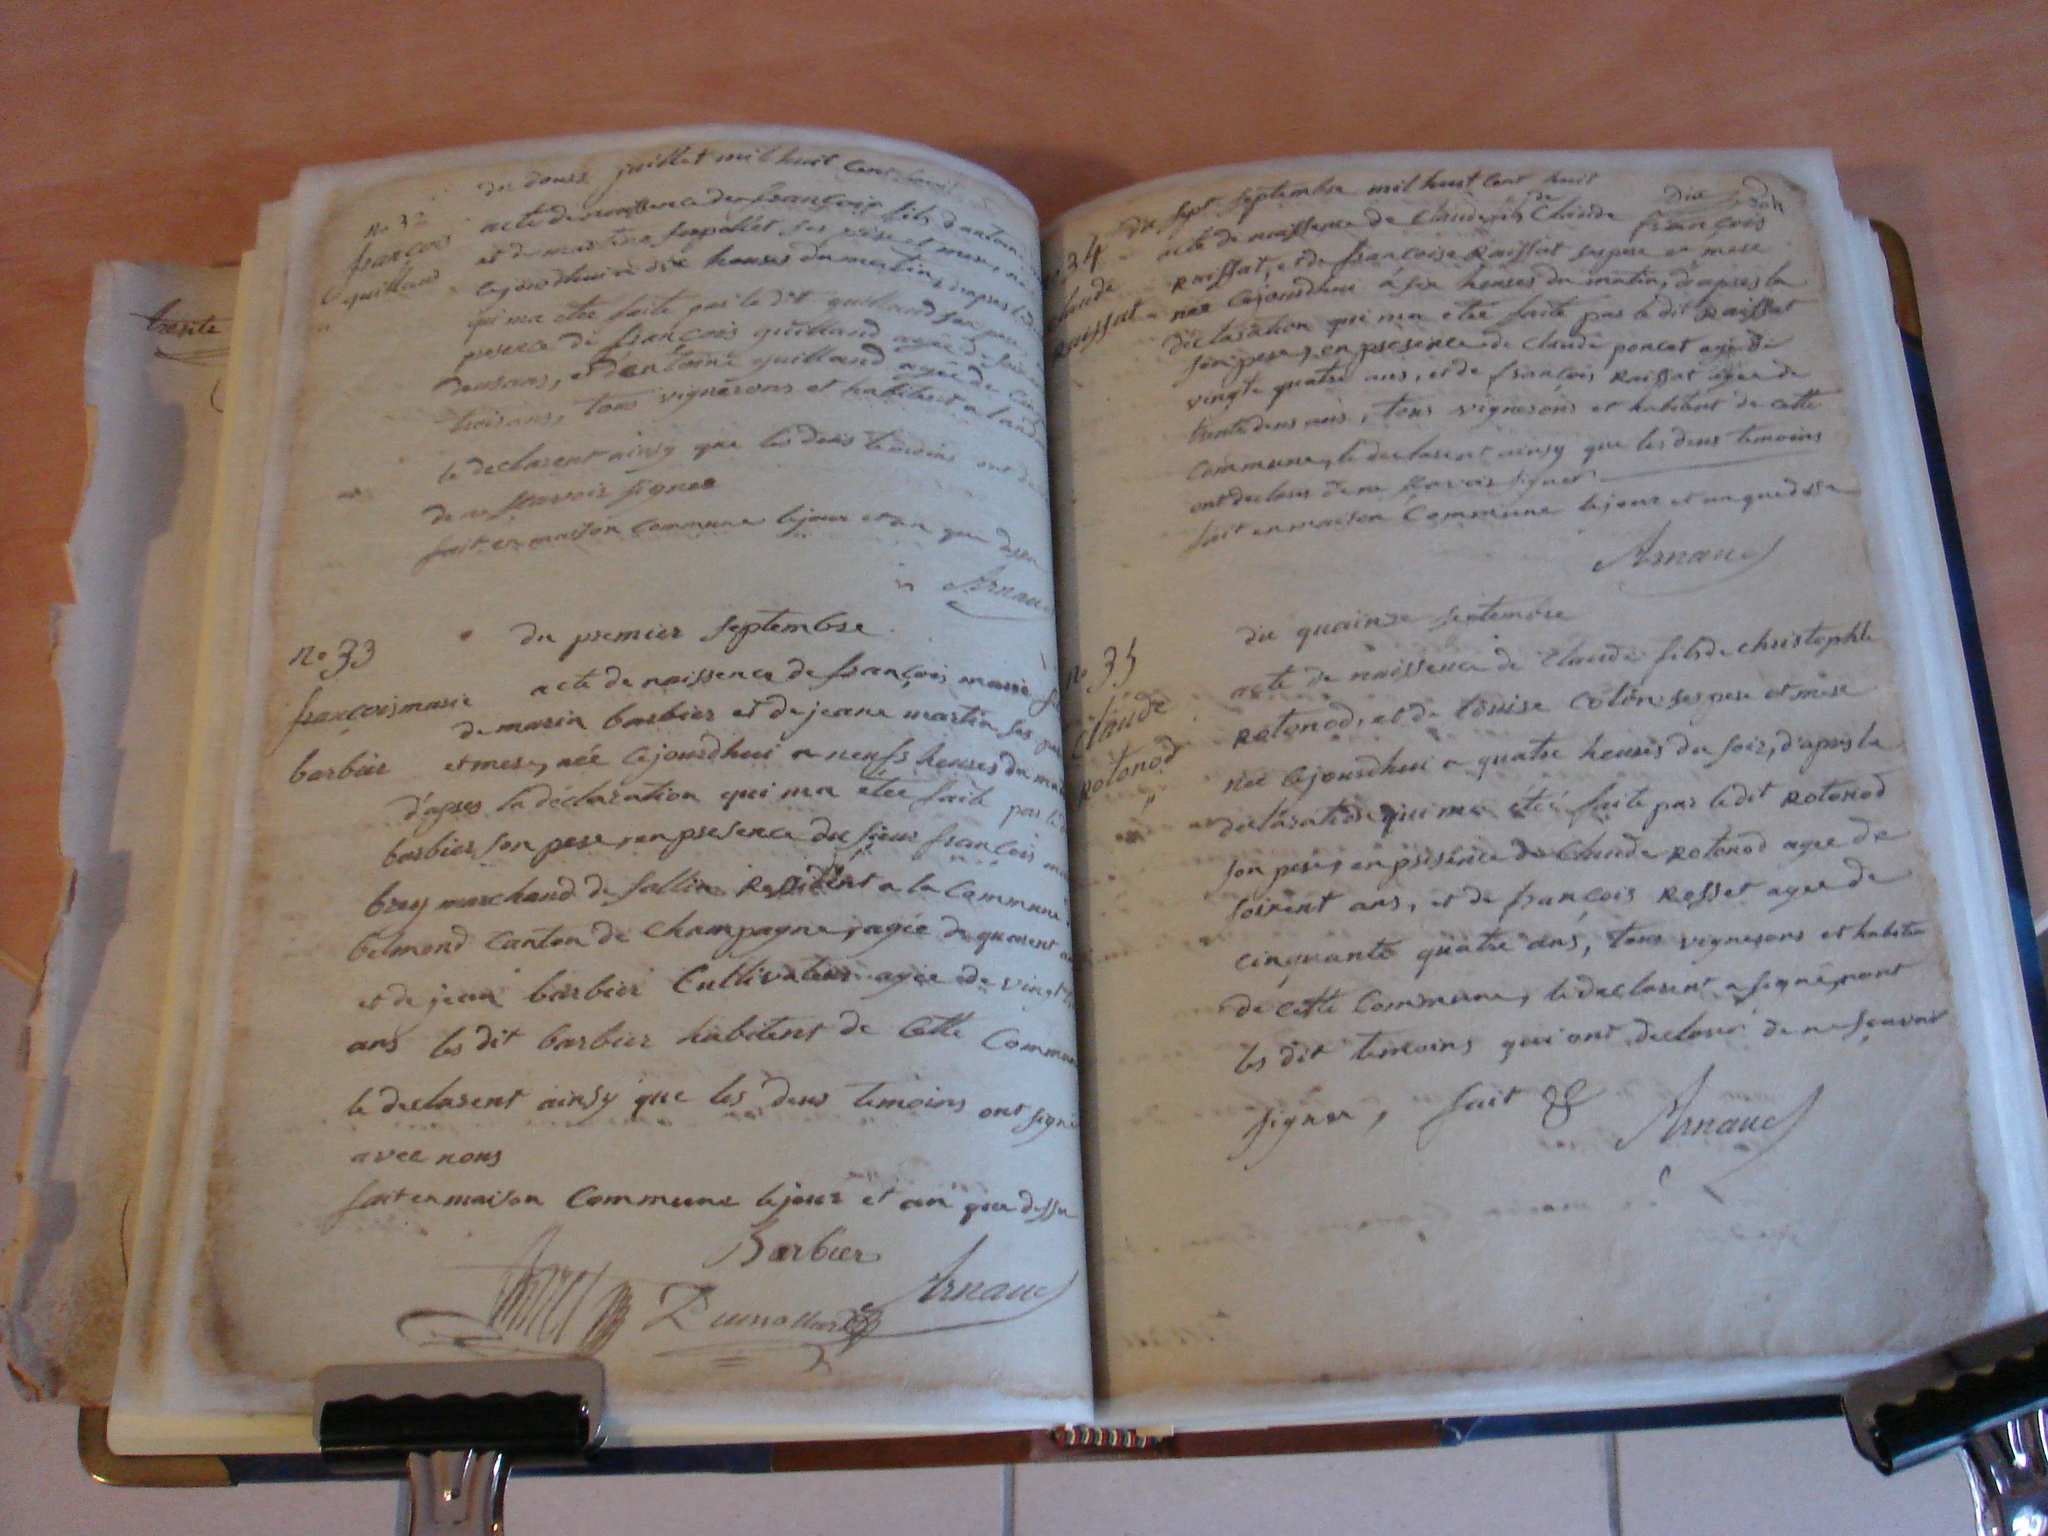 treize
du douze juillet mil huit cent huit
no 32
françois
guilland
acte de naissance de françois fils d'antoine
et de martine ses père et mere, né
cejourdhui a dix heures du matin, d'apres la
qui ma etée faite par le dit guilland son pere,
presence de françois guilland agée de
deux ans, et d'antoine guilland agée de
trois ans, tous vignerons et habitent a
le declarent ainsy que les deux temoins ont
de ne sçavoir signer
fait en maison commune le jour et an que dessu
Arnaud
no 33
françois marie
barbier
du premier septembre
acte de naissence de françois marie
de marin barbier et de jeane martin ses
et mere, née cejourdhui a neufs heures du
d'apres la déclaration qui ma etée faite par
barbier son pere, en presence du sieur françois
marchand de Resident a la Commune
belmond Canton de Champagne, agée de quarent
et de jean barbier Cultivateur agée de vingt
ans les dit barbier habitent de cette Commun
le declarent ainsy que les deux temoins ont signé
avec nous
fait en maison Commune le jour et an que dessu
Barbier
Dumollard Arnaud
du sept septembre mil huit cent huit
34
Claude
Raissat
acte de naissence de Claude fils de Claude françois
Raissat, et de françoise Raissat ses pere et mere
née cejourdhui a six heures du matin, d'apres la
déclaration qui ma etée faite par le dit Raissat
son pere, en presence de Claude poncet agée de
vingte quatre ans, et de françois Raissat agée de
trente deux ans, tous vignerons et habitent de cette
Commune, le declarent ainsy que les deux temoins
ont declaré de ne sçavoir signer
fait en maison Commune le jour et an que dessu
Arnaud
no 35
Claude
Rotonod
du quainze septembre
acte de naissence de Claude fils de christophle
Rotonod, et de Louise Colon ses pere et mere
née cejourdhui a quatre heures du soir, d'apres la
declaration qui ma étée faite par le dit Rotonod
son pere, en présence de Claude Rotonod agée de
soixent ans, et de françois Rosset agée de
cinquante quatre ans, tous vignerons et habiten
de cette Commune, le declarent a signé, nont
les dit temoins qui ont declaré de ne sçavoir
signer, fait &
Arnaud